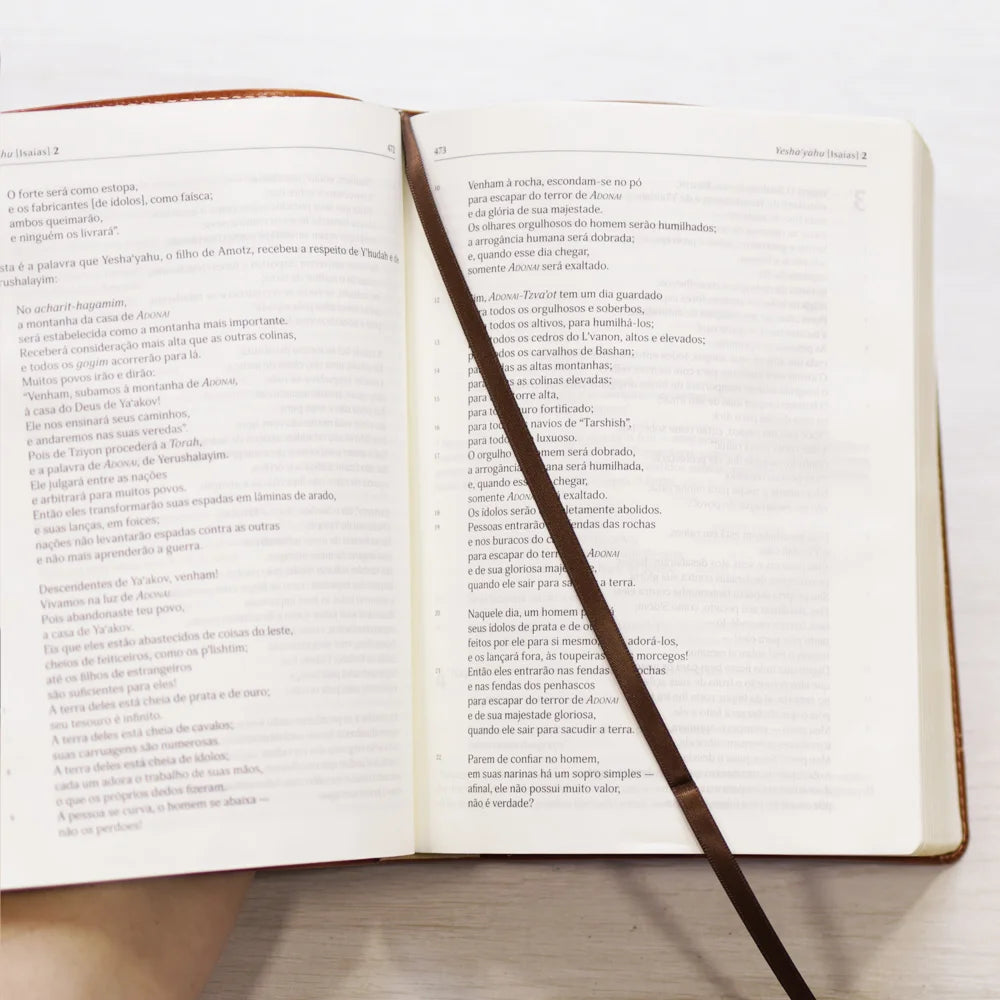 hu [Isaías] 2
472
O forte será como estopa,
e os fabricantes [de ídolos], como faísca;
ambos queimarão,
e ninguém os livrará”.
sta é a palavra que Yesha‘yahu, o filho de Amotz, recebeu a respeito de Y’hudah e de
rushalayim:
No acharit-hayamim,
a montanha da casa de ADONAI
será estabelecida como a montanha mais importante.
Receberá consideração mais alta que as outras colinas,
e todos os goyim acorrerão para lá.
Muitos povos irão e dirão:
“Venham, subamos à montanha de ADONAI,
à casa do Deus de Ya‘akov!
Ele nos ensinará seus caminhos,
e andaremos nas suas veredas”.
Pois de Tziyon procederá a Torah,
e a palavra de ADONAI, de Yerushalayim.
Ele julgará entre as nações
e arbitrará para muitos povos.
Então eles transformarão suas espadas em lâminas de arado,
e suas lanças, em foices;
nações não levantarão espadas contra as outras
e não mais aprenderão a guerra.
Descendentes de Ya‘akov, venham!
Vivamos na luz de ADONAI
Pois abandonaste teu povo,
a casa de Ya‘akov.
Eis que eles estão abastecidos de coisas do leste,
cheios de feiticeiros, como os p’lishtim;
até os filhos de estrangeiros
são suficientes para eles!
A terra deles está cheia de prata e de ouro;
seu tesouro é infinito.
A terra deles está cheia de cavalos;
suas carruagens são numerosas.
8 A terra deles está cheia de ídolos;
cada um adora o trabalho de suas mãos,
o que os próprios dedos fizeram.
9 A pessoa se curva, o homem se abaixa —
não os perdoes!
473
Yesha‘yahu [Isaías] 2
10 Venham à rocha, escondam-se no pó
para escapar do terror de ADONAI
e da glória de sua majestade.
Os olhares orgulhosos do homem serão humilhados;
a arrogância humana será dobrada;
e, quando esse dia chegar,
somente ADONAI será exaltado.
12 ADONAI-Tzva’ot tem um dia guardado
todos os orgulhosos e soberbos,
todos os altivos, para humilhá-los;
13 todos os cedros do L’vanon, altos e elevados;
todos os carvalhos de Bashan;
14 as altas montanhas;
as colinas elevadas;
15 alta,
fortificado;
16 navios de “Tarshish”,
luxuoso.
17 O orgulho do homem será dobrado,
a arrogância será humilhada,
e, quando esse chegar,
somente será exaltado.
18 Os ídolos serão completamente abolidos.
19 Pessoas entrarão fendas das rochas
e nos buracos do
para escapar do terror ADONAI
e de sua gloriosa majestade,
quando ele sair para sacudir a terra.
20 Naquele dia, um homem
seus ídolos de prata e de
feitos por ele para si mesmo, adorá-los,
e os lançará fora, às toupeiras morcegos!
21 Então eles entrarão nas fendas rochas
e nas fendas dos penhascos
para escapar do terror de ADONAI
e de sua majestade gloriosa,
quando ele sair para sacudir a terra.
22 Parem de confiar no homem,
em suas narinas há um sopro simples —
afinal, ele não possui muito valor,
não é verdade?